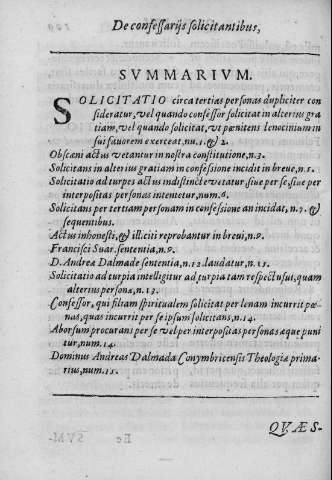 De confessarijs solicitantibus,
SVMMARIVM.
SOLICITATIO circa tertias personas dupliciter con
sideratur, vel quando confessor solicitat in alterius gra
tiam, vel quando solicitat, vt pœnitens lenocinium in
sui fauorem exerceat, nu. 1. & 2.
Obscæni actus vetantur in nostra constitutione, n. 3.
Solicitans in alterius gratiam in confessione incidit in breue, n. 5.
Solicitatio ad turpes actus indistinctè vetatur, siue per se, siue per
interpositas personas intentetur, num. 6.
Solicitans per tertiam personam in confessione an incidat, n. 7. &
sequentibus.
Actus inhonesti, & illiciti reprobantur in breui, n. 9.
Francisci Suar. sententia, n. 9.
D. Andrea Dalmade sententia, n. 12. laudatur, n. 15.
Solicitatio ad turpia intelligitur ad turpia tam respectu sui, quam
alterius persona, n. 13.
Confessor, qui filiam spiritualem solicitat per lenam incurrit pœ-
nas, quas incurrit per se ipsum solicitans, n. 14.
Aborsum procurans per se vel per interpositas personas æque puni
tur, num. 14.
Dominus Andreas Dalmada Conymbricensis Theologiæ prima-
rius, num. 15.
QVÆS-